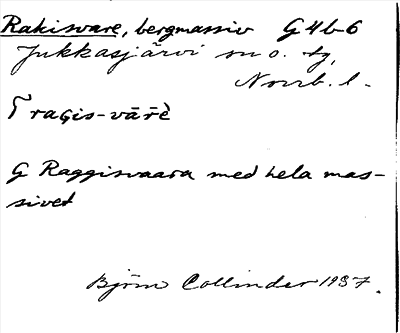 Rakisvare, bergmassiv G4b-6
Jukkasjärvi sn o. tg,
Norrb. l.
Tragis-vārḕ
G Raggisvaara med hela mas-
sivet
Björn Collinder 1937.